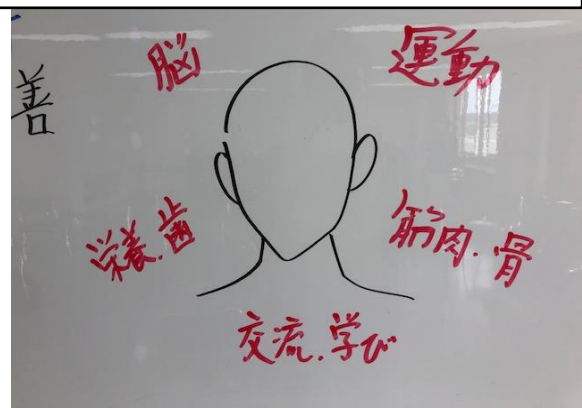 善
脳
運動
栄養.歯
筋肉.骨
交流.学び